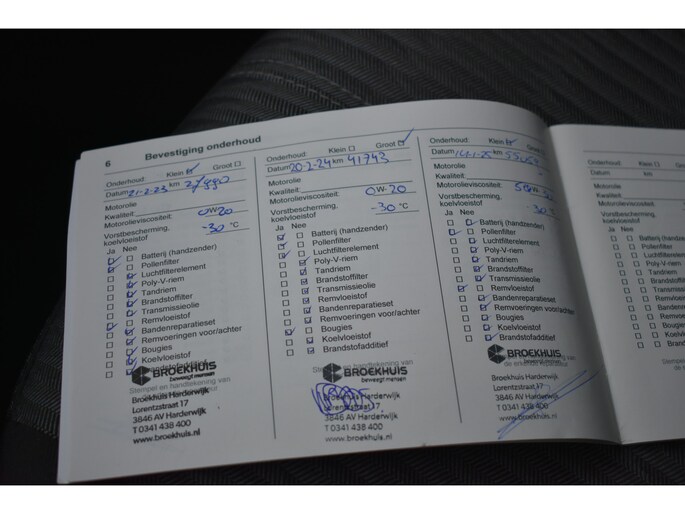 6 Bevestiging onderhoud
Onderhoud: Klein Groot
Datum 21-2-23 km
Motorolie
Kwaliteit: 0W20
Motorolieviscositeit:
Vorstbescherming, koelvloeistof -30 °C
Ja Nee
Batterij (handzender)
Pollenfilter
Luchtfilterelement
Poly-V-riem
Tandriem
Brandstoffilter
Transmissieolie
Remvloeistof
Bandenreparatieset
Remvoeringen voor/achter
Bougies
Koelvloeistof
Brandstofadditief
Stempel en handtekening van
BROEKHUIS
beweegt mensen
Broekhuis Harderwijk
Lorentzstraat 17
3846 AV Harderwijk
T 0341 438 400
www.broekhuis.nl
Onderhoud: Klein Groot
Datum 20-2-24 km 41743
Motorolie
Kwaliteit:
Motorolieviscositeit: 0W-20
Vorstbescherming,
koelvloeistof -30 °C
Ja Nee
Batterij (handzender)
Pollenfilter
Luchtfilterelement
Poly-V-riem
Tandriem
Brandstoffilter
Transmissieolie
Remvloeistof
Bandenreparatieset
Remvoeringen voor/achter
Bougies
Koelvloeistof
Brandstofadditief
Stempel en handtekening van
BROEKHUIS
beweegt mensen
Broekhuis Harderwijk
Lorentzstraat 17
3846 AV Harderwijk
T 0341 438 400
www.broekhuis.nl
Onderhoud: Klein Groot
Datum km
Motorolie
Kwaliteit:
Motorolieviscositeit:
Vorstbescherming,
koelvloeistof -30 °C
Ja Nee
Batterij (handzender)
Pollenfilter
Luchtfilterelement
Poly-V-riem
Tandriem
Brandstoffilter
Transmissieolie
Remvloeistof
Bandenreparatieset
Remvoeringen voor/achter
Bougies
Koelvloeistof
Brandstofadditief
BROEKHUIS
beweegt mensen
Broekhuis Harderwijk
Lorentzstraat 17
3846 AV Harderwijk
T 0341 438 400
www.broekhuis.nl
Onderhoud:
Datum
Motorolie
Kwaliteit:
Motorolieviscositeit:
Vorstbescherming,
koelvloeistof
Ja Nee
Batterij (handzender)
Pollenfilter
Luchtfilterelement
Poly-V-riem
Tandriem
Brandstoffilter
Transmissieolie
Remvloeistof
Bandenreparatieset
Remvoeringen
Bougies
Koelvloeistof